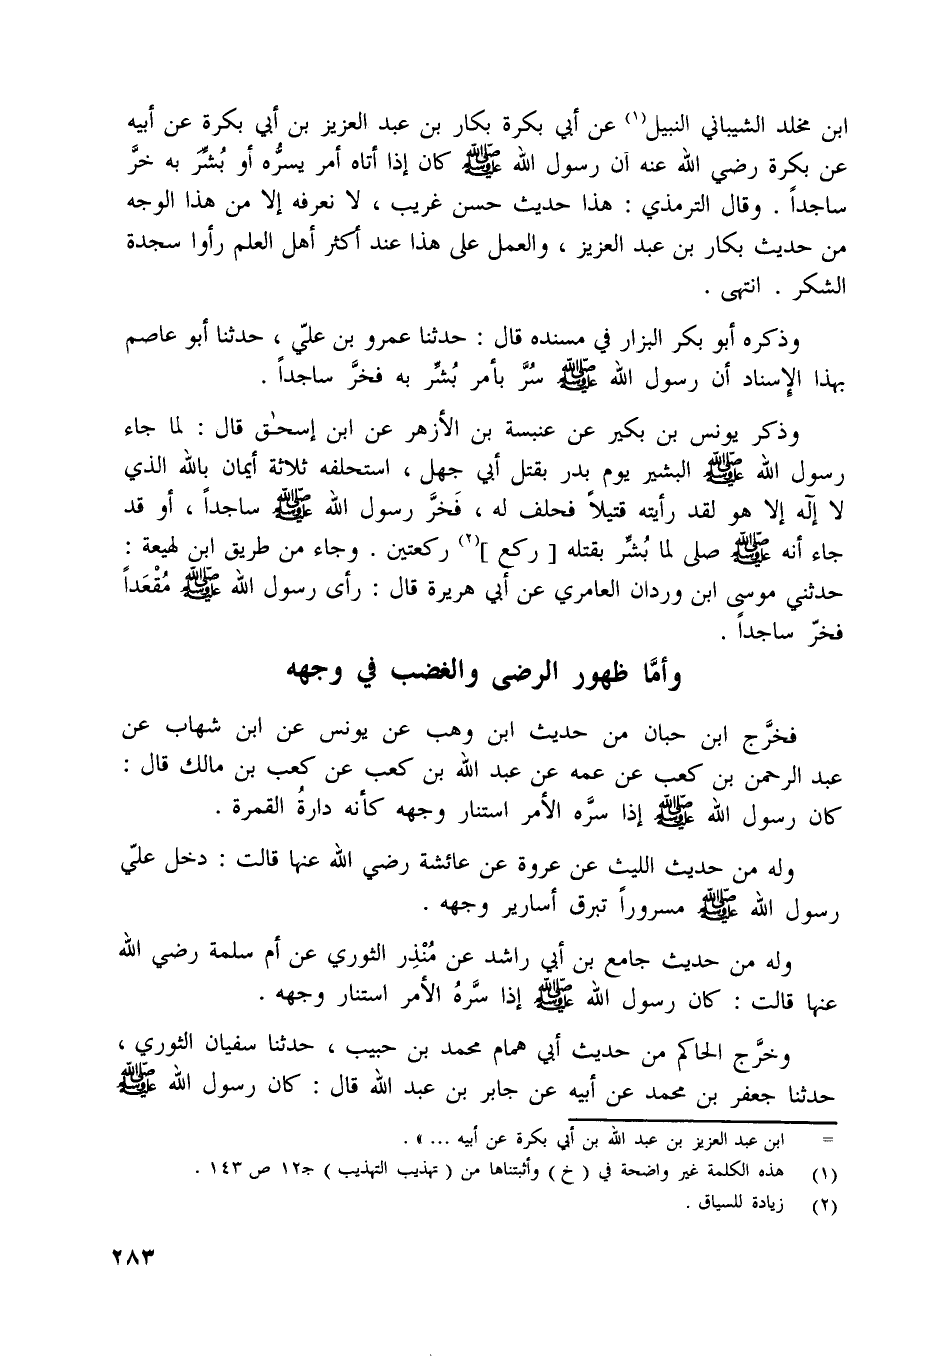 ابن مخلد الشيباني النبيل(١) عن أبي بكرة بكار بن عبد العزيز بن أبي بكرة عن أبيه
عن بكرة رضي الله عنه أن رسول الله ﷺ كان إذا أتاه أمر يسرُّه أو بُشِّرَ به خرَّ
ساجداً . وقال الترمذي : هذا حديث حسن غريب ، لا نعرفه إلا من هذا الوجه
من حديث بكار بن عبد العزيز ، والعمل على هذا عند أكثر أهل العلم رأوا سجدة
الشكر . انتهى .
وذكره أبو بكر البزار في مسنده قال : حدثنا عمرو بن عليّ ، حدثنا أبو عاصم
بهذا الإسناد أن رسول الله ﷺ سُرَّ بأمر بُشِّر به فخرَّ ساجداً .
وذكر يونس بن بكير عن عنبسة بن الأزهر عن ابن إسحٰق قال : لما جاء
رسول الله ﷺ البشير يوم بدر بقتل أبي جهل ، استحلفه ثلاثة أيمان بالله الذي
لا إلٓه إلا هو لقد رأيته قتيلاً فحلف له ، فَخرَّ رسول الله ﷺ ساجداً ، أو قد
جاء أنه ﷺ صلى لما بُشِّر بقتله [ ركع ](٢) ركعتين . وجاء من طريق ابن لهيعة :
حدثني موسى ابن وردان العامري عن أبي هريرة قال : رأى رسول الله ﷺ مُقْعَداً
فخرّ ساجداً .
وأمَّا ظهور الرضى والغضب في وجهه
فخرَّج ابن حبان من حديث ابن وهب عن يونس عن ابن شهاب عن
عبد الرحمن بن كعب عن عمه عن عبد الله بن كعب عن كعب بن مالك قال :
كان رسول الله ﷺ إذا سرَّه الأمر استنار وجهه كأنه دارةُ القمرة .
وله من حديث الليث عن عروة عن عائشة رضي الله عنها قالت : دخل عليّ
رسول الله ﷺ مسروراً تبرق أسارير وجهه .
وله من حديث جامع بن أبي راشد عن مُنْذِر الثوري عن أم سلمة رضي الله
عنها قالت : كان رسول الله ﷺ إذا سَّرَهُ الأمر استنار وجهه .
وخرَّج الحاكم من حديث أبي همام محمد بن حبيب ، حدثنا سفيان الثوري ،
حدثنا جعفر بن محمد عن أبيه عن جابر بن عبد الله قال : كان رسول الله ﷺ
= ابن عبد العزيز بن عبد الله بن أبي بكرة عن أبيه ... » .
(١) هذه الكلمة غير واضحة في ( خ ) وأثبتناها من ( تهذيب التهذيب ) جـ١٢ ص ١٤٣ .
(٢) زيادة للسياق .
٢٨٣